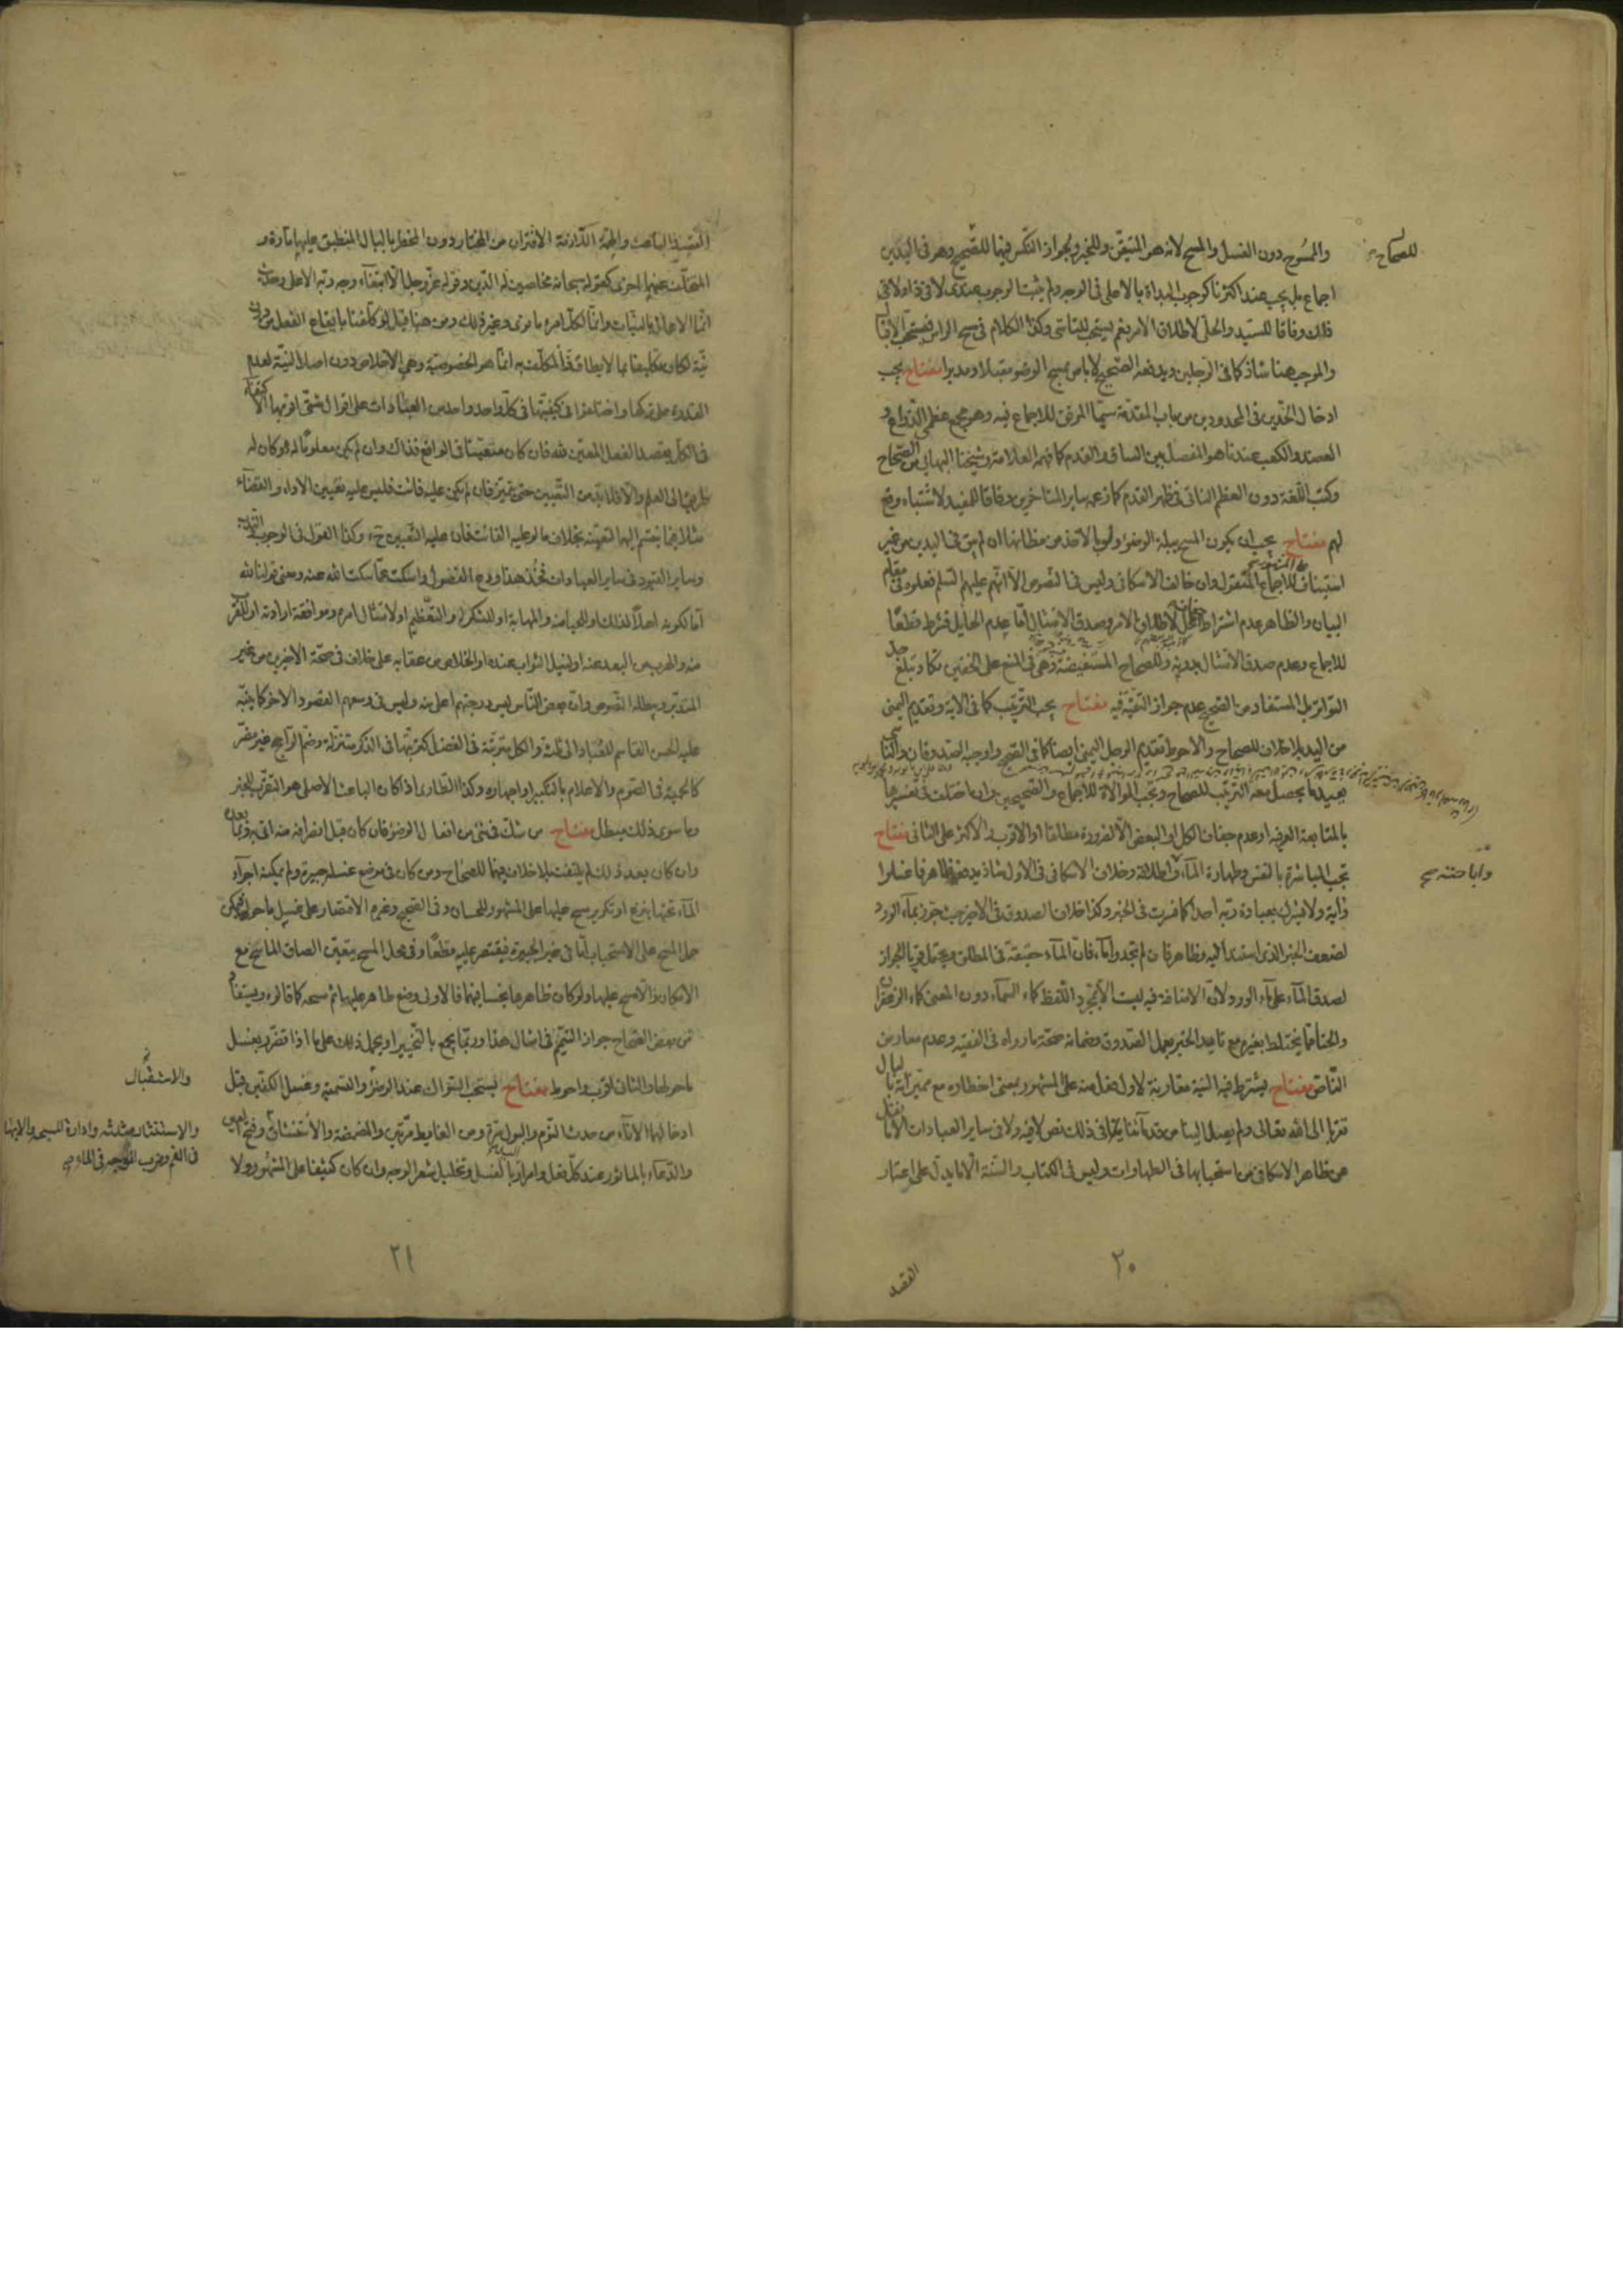 والممسوح دون الغسل والمسح لانه هو المتيقن وللخبر ويجوز النكس فيها للصحيح وهو في اليدين
للصحاح
اجماع بل يجب عند اكثرنا كوجوب البداة بالاعلى في الوجه ولم يثبت الوجوب عندي لا في ذا ولا في
ذلك وفاقا للسيد والحلي لاطلاق الامر نعم يستحب للتاسي وكذا الكلام في مسح الراس فيستحب الاقبال
والموجب هنا شاذ كما في الرجلين ويدفعه الصحيح لا باس بمسح الوضوء مقبلا ومدبرا مفتاح يجب
ادخال الحدين في المحدودين من باب المقدمة سيما المرفق للاجماع فيه وهو مجمع عظمي الذراع و
العضد والكعب عندنا هو المفصل بين الساق والقدم كما فهمه العلامة وشيخنا البهائي من الصحاح
وكتب اللغة دون العظم الناتي في ظهر القدم كما زعمه ساير المتاخرين وفاقا للمفيد لاشتباه وقع
لهم مفتاح يجب ان يكون المسح ببلة الوضوء ولو بالاخذ من مظانها ان لم يبق في اليدين من غير
استيناف للاجماع المنقول وان خالف الاسكافي وليس في النصوص الا انهم عليهم السلم فعلوه في مقام
البيان والظاهر عدم اشتراط جفاف المحل لاطلاق الامر وصدق الامتثال اما عدم الحايل فشرط قطعا
للاجماع وعدم صدق الامتثال بدونه وللصحاح المستفيضة وهي في المنع على الخفين تكاد تبلغ حد
التواتر بل المستفاد من الصحيح عدم جواز التقية فيه مفتاح يجب الترتيب كما في الاية وتقديم اليمنى
من اليد بلا خلاف للصحاح والاحوط تقديم الرجل اليمنى ايضا كما في الصحيح واوجبه الصدوقان والناسي
يعيد ما يحصل معه الترتيب للصحاح وتجب الموالاة للاجماع والصحيحين وان اختلف في تفسيرها
بالمتابعة العرفية او عدم جفاف الكل او البعض الا لضرورة مطلقا او الاقرب والاكثر على الثاني مفتاح
تجب المباشرة بالنفس وطهارة الماء واطلاقه وخلاف الاسكافي في الاول شاذ يدفعه ظاهر فاغسلوا
واباحته
ذاية ولا يشرك بعبادة ربه احدا كما فسرت في الخبر وكذا خلاف الصدوق في الاخير حيث جوز بماء الورد
لضعف الخبر الذي استند اليه وظاهر فان لم تجدوا ماء فان الماء حقيقة في المطلق ويحتمل قويا الجواز
لصدق الماء على ماء الورد ولان الاضافة فيه ليست الا لمجرد اللفظ كماء السماء دون المعنى كماء الزعفران
والحنا مما يختلط بغيره مع تاييد الخبر بعمل الصدوق وضمانه صحة ما رواه في الفقيه وعدم معارض
الناص مفتاح يشترط فيه النية مقارنة لاول فعل منه على المشهور بمعنى اخطاره مع مميزاته بالبال
تقربا الى الله تعالى ولم يصل الينا من قدمائنا في ذلك نص لا فيه ولا في ساير العبادات الا ما نقل
عن ظاهر الاسكافي من استحبابها في الطهارات وليس في الكتاب والسنة الا ما يدل على اعتبار
٢٠
القصد
القصد والباعث والجهة اللازمة الاقتران من المختار دون المخطر بالبال المنطبق عليها تارة و
المتخلف عنها اخرى كقوله سبحانه مخلصين له الدين وقوله عز وجل الا ابتغاء وجه ربه الاعلى وحديث
انما الاعمال بالنيات وانما لكل امرء ما نوى وغير ذلك ومن هنا قيل لو كلفنا بايقاع الفعل من دون
نية لكان تكليفا بما لا يطاق فالمكلف به انما هو الخصوصية وهي الاخلاص دون اصل النية لعدم
القدرة على تركها واختلفوا في كيفيتها في كل واحد واحد من العبادات على اقوال شتى اقربها الاكتفاء
في الكل بقصد الفعل المعين لله فان كان متعينا في الواقع فذاك وان لم يكن معلوما له لو كان له
طريق الى العلم والا فلا بد من التعيين حتى يتميز فان لم يكن عليه فائت فليس عليه تعيين الاداء والقضاء
مثلا بخلاف ما لو عليه الفائت فان عليه التعيين ح وكذا القول في الوجوب والندب
وساير القيود في ساير العبادات فخذ هذا ودع الفضول واسكت عما سكت الله عنه ومعنى قولنا لله
اما لكونه اهلا لذلك او للحيا منه والمهابة او للشكر له والتعظيم او لامتثال امره وموافقة ارادته او للقرب
منه والهرب من البعد عنه او لنيل الثواب عنده او الخلاص من عقابه على خلاف في صحة الاخيرين من غير
المتدبر ويبطله النصوص وان بعض الناس ليس درجتهم اعلى منه وليس في وسعهم القصود الاخر كما ينبه
عليه الحسن القاسم للعباد الى ثلثة والكل مترتبة في الفضل كترتبها في الذكر متنزلة وضم الراجح غير مضر
كالحمية في الصوم والاعلام بالتكبير او اجهاره وكذا الطارى اذا كان الباعث الاصلي هو التقرب للخبر
وما سوى ذلك مبطل مفتاح من شك في شئ من افعال الوضوء فان كان قبل انصرافه منه اتى به وبما بعده
وان كان بعد ذلك لم يلتفت بلا خلاف فيهما للصحاح ومن كان في موضع غسله جبيرة ولم يمكنه اجراء
الماء تحتها بنزع او تكرير مسح عليها على المشهور للحسان وفي الصحيح وغيره الاقتصار على غسل ما حولها فيمكن
حمل المسح على الاستحباب اما في غير الجبيرة فيقتصر عليه قطعا وفي محل المسح يتعين الصاق الماسح مع
الامكان والا مسح عليها ولو كان ظاهرها نجسا فيهما فالاولى وضع طاهر عليها ثم مسحه كما قالوه ويستفاد
من بعض الصحاح جواز التيمم في امثال هذا وربما يجمع بالتخيير او بحمل ذلك على ما اذا تضرر بغسل
ما حولها والثاني اقرب واحوط مفتاح يستحب السواك عند الوضوء والتسمية وغسل الكفين قبل
والاستقبال
ادخالهما الاناء من حدث النوم والبول مرة ومن الغايط مرتين والمضمضة والاستنشاق وفتح العين
والاستنثار مثلثه وادارة المسبحة والابهام
في الفم وضرب الوجه في الماء
والدعاء بالماثور عند كل فعل وامرار اليد بالغسل وتخليل شعر الوجه وان كان كثيفا على المشهور ولا
٢١